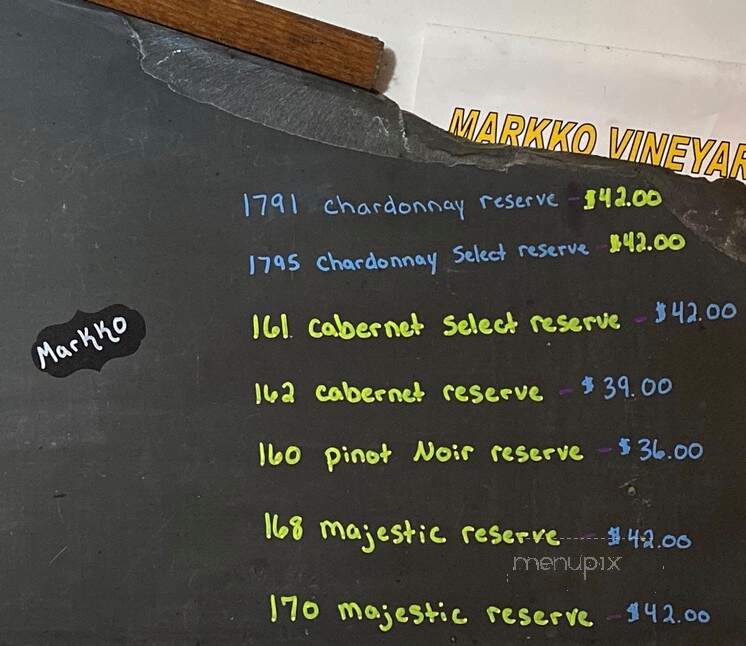 MARKKO VINEYAR
1791 chardonnay reserve - $42.00
1795 chardonnay Select reserve - $42.00
161 cabernet select reserve - $42.00
MarKKO
162 cabernet reserve - $39.00
160 pinot Noir reserve - $36.00
168 majestic reserve - $42.00
menupix
170 majestic reserve - $42.00